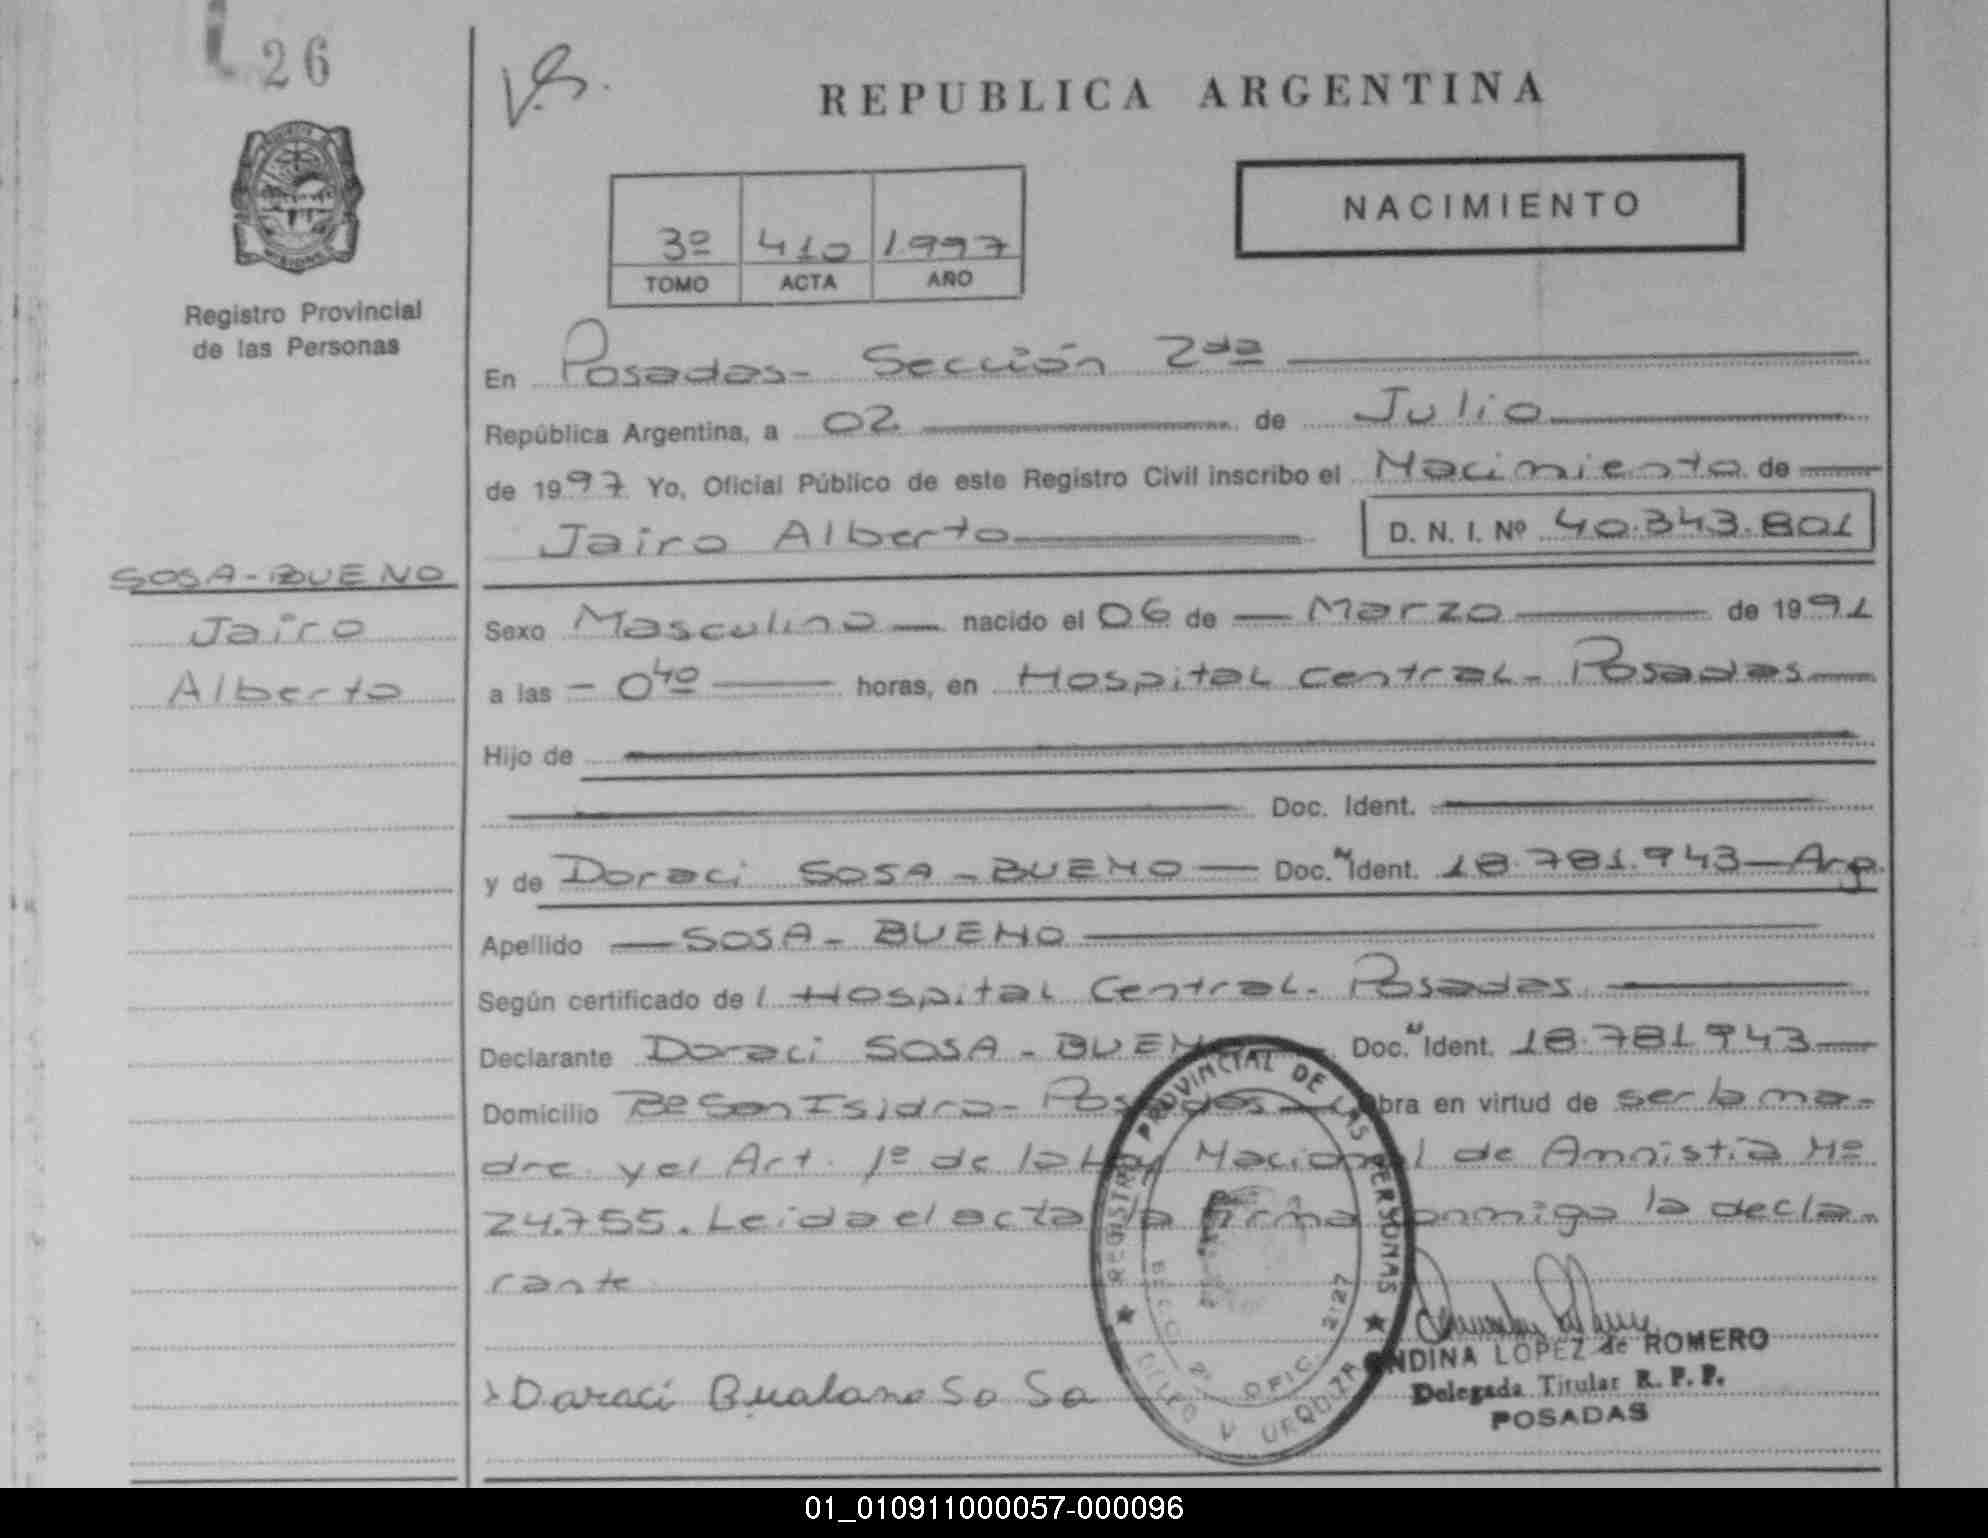 26
V.B.
REPUBLICA ARGENTINA
NACIMIENTO
3º 410 1.997
TOMO ACTA AÑO
Registro Provincial
de las Personas
En Posadas- Sección 2da
República Argentina, a 02 de Julio
de 1997 Yo, Oficial Público de este Registro Civil inscribo el Nacimiento de
Jairo Alberto D. N. I. Nº 40.343.801
SOSA-BUENO
Jairo
Alberto
Sexo Masculino nacido el 06 de Marzo de 1991
a las 0 40 horas, en Hospital Central- Posadas
Hijo de
Doc. Ident.
y de Doraci SOSA-BUENO Doc. N Ident. 18.781.943-Arg.
Apellido SOSA-BUENO
Según certificado del Hospital Central. Posadas
Declarante Doraci SOSA-BUENO Doc. N Ident. 18.781943
Domicilio Bº San Isidro- Posadas Obra en virtud de ser la ma-
dre y el Art. 1º de la Ley Nacional de Amnistia Nº
24.755. Leida el acta la firma conmigo la decla-
rante
REGISTRO PROVINCIAL DE LAS PERSONAS
OFIC. 2127
V URQUIZA
ONDINA LOPEZ de ROMERO
Delegada Titular R. P. P.
POSADAS
Daraci So Sa
01_010911000057-000096